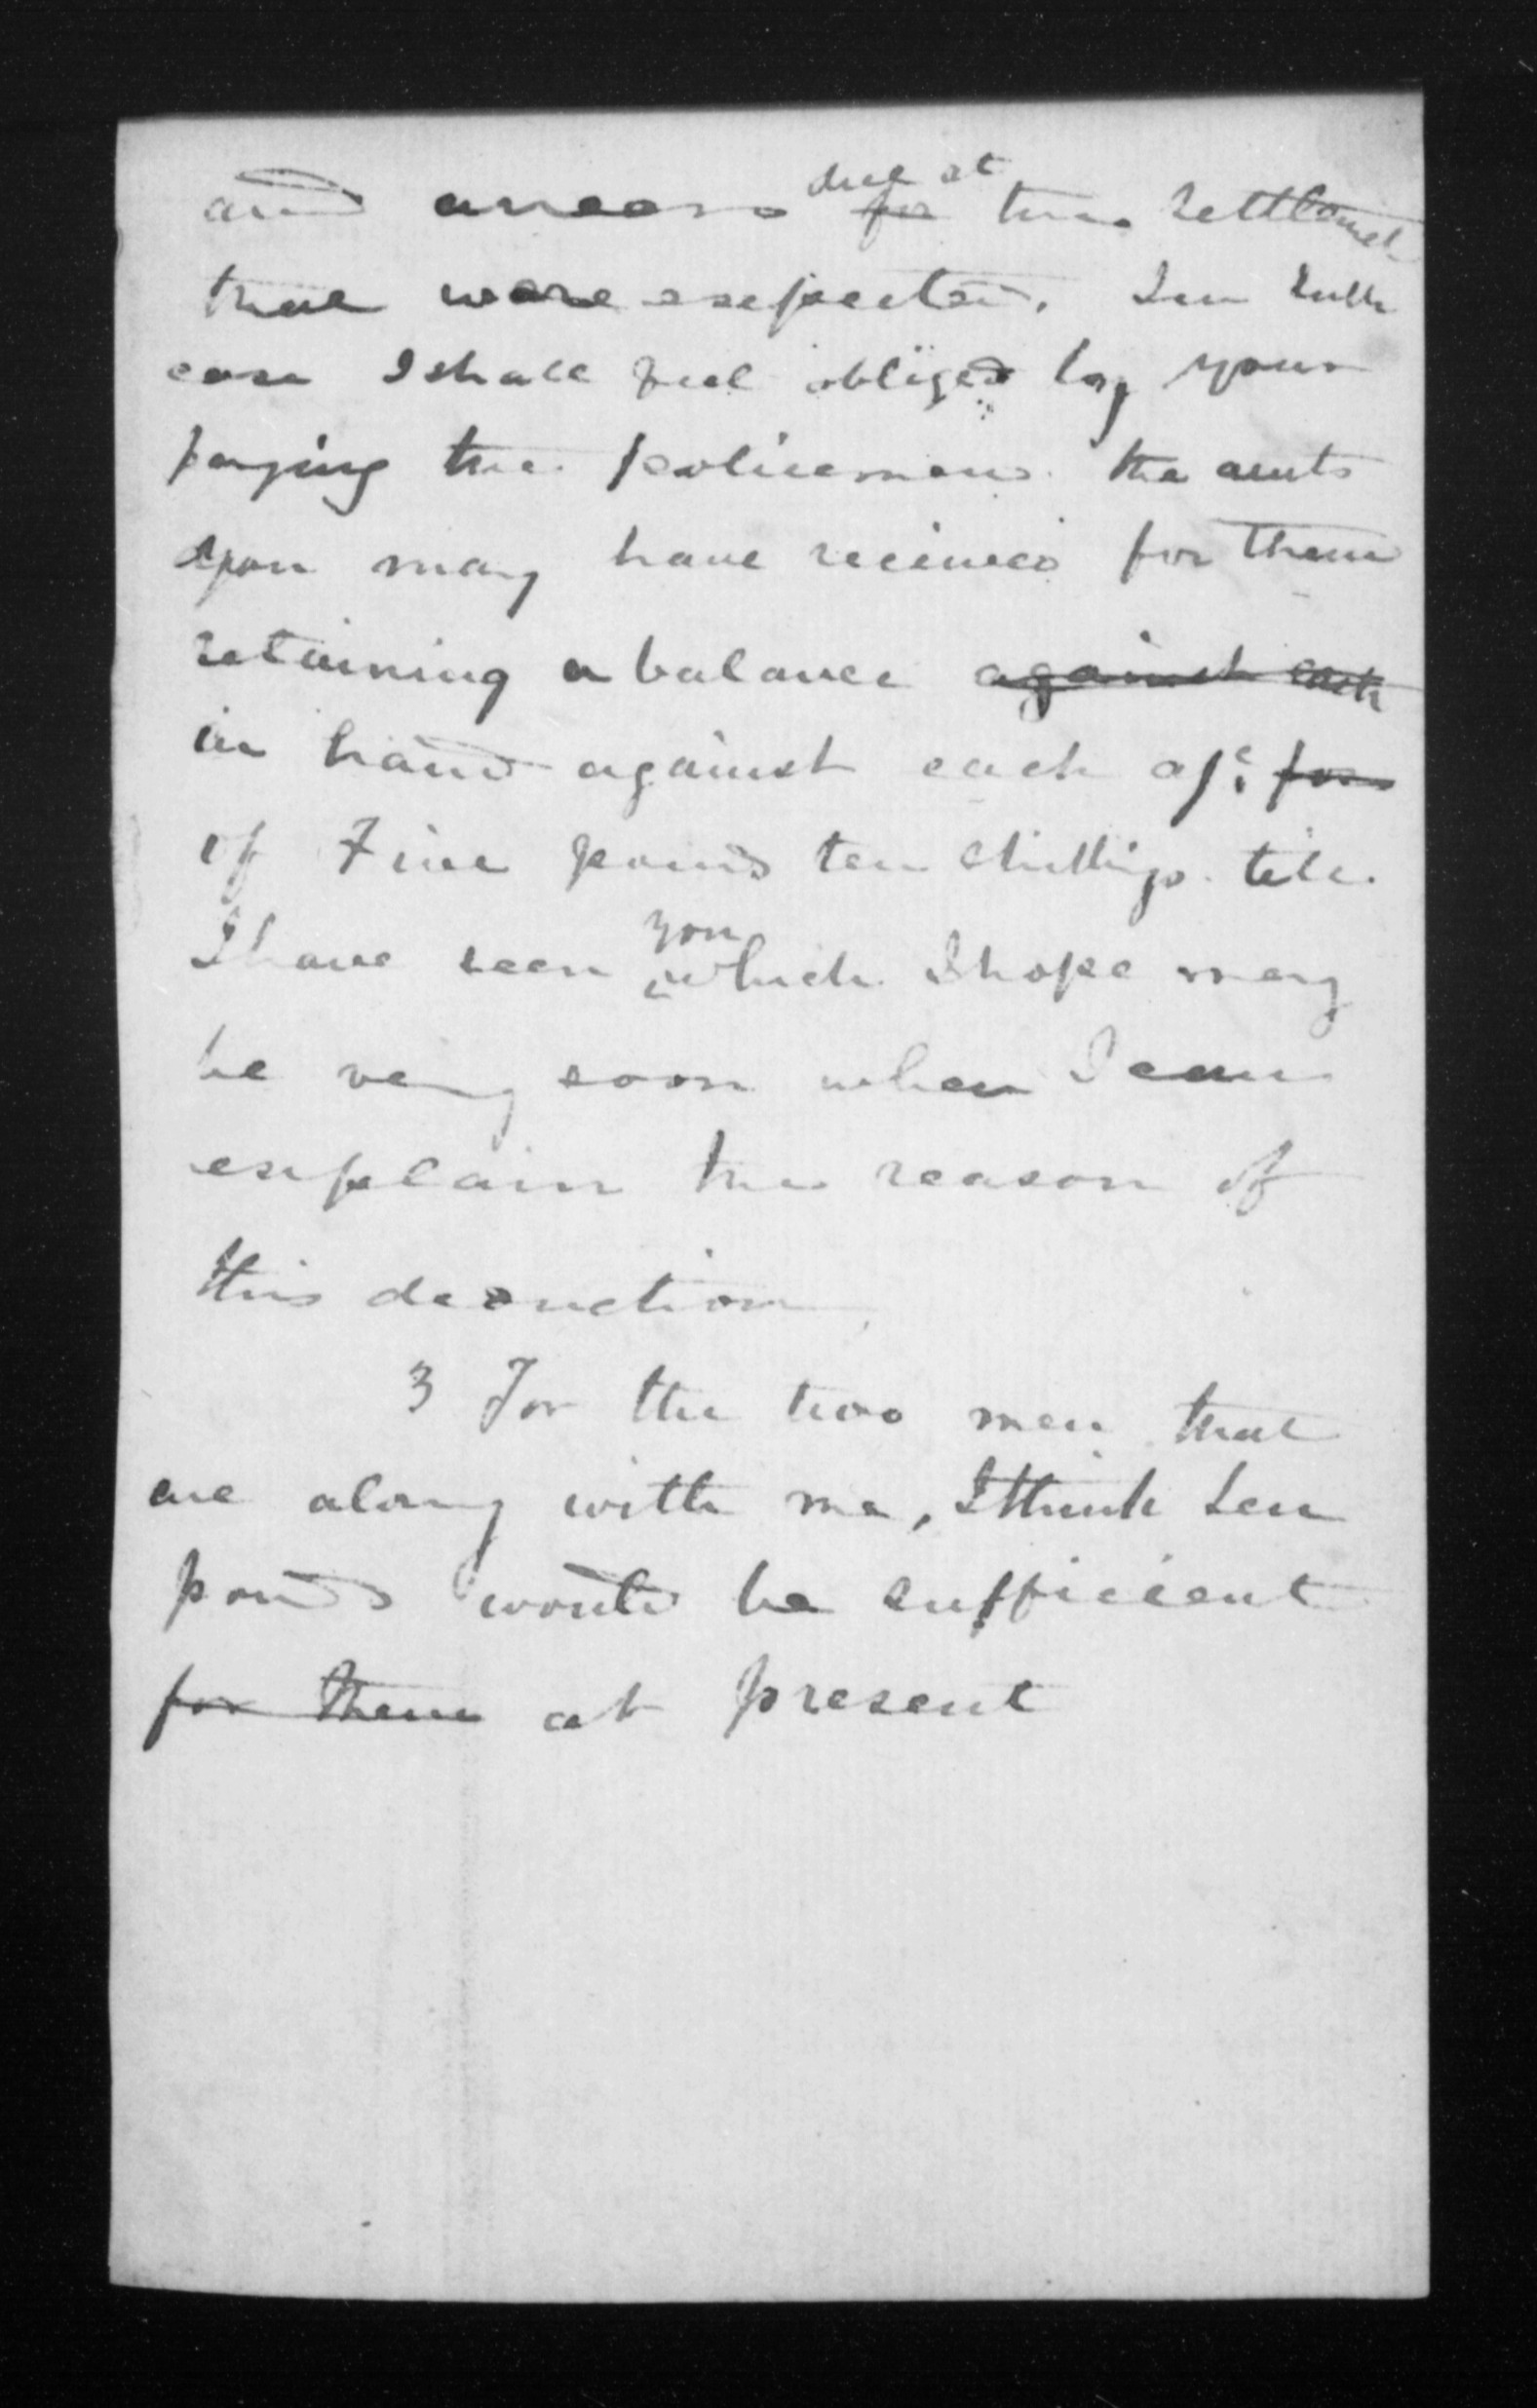 and arrears due at for the settlement
that were expected. In such
case I shall feel obliged by your
paying the policemen the amts
you may have received for them
retaining a balance against each
in hand against each a/c for
of Five pounds ten shillings till
I have seen you which I hope may
be very soon when I can
explain the reason of
this deduction
3 For the two men that
are along with me, I think ten
pounds would be sufficient
for them at present